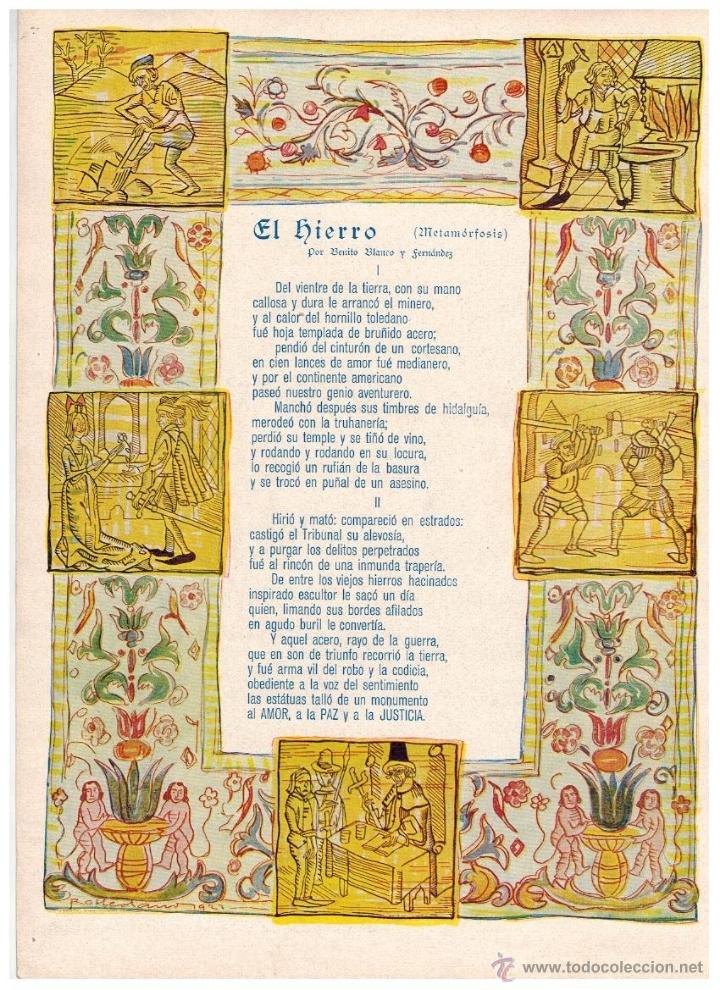 El Hierro (Metamórfosis)
Por Benito Blanco y Fernández
I
Del vientre de la tierra, con su mano
callosa y dura le arrancó el minero,
y al calor del hornillo toledano
fué hoja templada de bruñido acero;
pendió del cinturón de un cortesano,
en cien lances de amor fué medianero,
y por el continente americano
paseó nuestro genio aventurero.
Manchó después sus timbres de hidalguía,
merodeó con la truhanería;
perdió su temple y se tiñó de vino,
y rodando y rodando en su locura,
lo recogió un rufián de la basura
y se trocó en puñal de un asesino.
II
Hirió y mató: compareció en estrados:
castigó el Tribunal su alevosía,
y a purgar los delitos perpetrados
fué al rincón de una inmunda trapería.
De entre los viejos hierros hacinados
inspirado escultor le sacó un día
quien, limando sus bordes afilados
en agudo buril le convertía.
Y aquel acero, rayo de la guerra,
que en son de triunfo recorrió la tierra,
y fué arma vil del robo y la codicia,
obediente a la voz del sentimiento
las estátuas talló de un monumento
al AMOR, a la PAZ y a la JUSTICIA.
www.todocoleccion.net